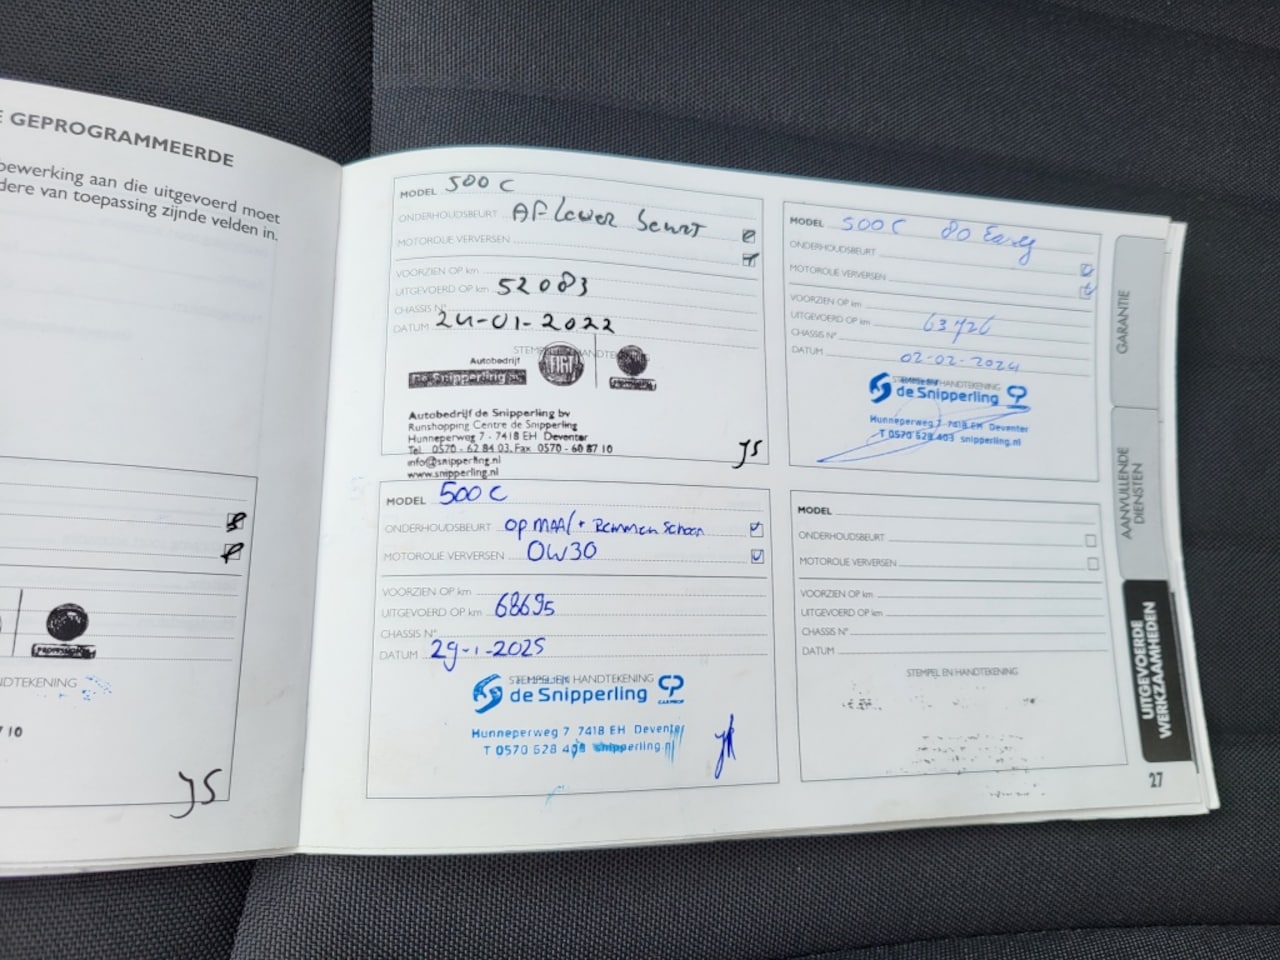 GEPROGRAMMEERDE
bewerking aan die uitgevoerd moet
dere van toepassing zijnde velden in.
NDTEKENING
710
JS
MODEL 500 C
ONDERHOUDSBEURT Aflever beurt
MOTOROLIE VERVERSEN
VOORZIEN OP km
UITGEVOERD OP km 52083
CHASSIS N°
DATUM 24-01-2022
STEMPEL EN HANDTEKENING
Autobedrijf
de Snipperling bv
FIAT
Autobedrijf de Snipperling bv
Runshopping Centre de Snipperling
Hunneperweg 7 - 7418 EH Deventer
Tel. 0570 - 62 84 03. Fax 0570 - 60 87 10
info@snipperling.nl
www.snipperling.nl
JS
MODEL 500C
ONDERHOUDSBEURT
MOTOROLIE VERVERSEN
VOORZIEN OP km
UITGEVOERD OP km 63726
CHASSIS N°
DATUM 02-02-2024
STEMPEL EN HANDTEKENING
de Snipperling CP
Hunneperweg 7 7418 EH Deventer
T 0570 628 403 snipperling.nl
MODEL 500 C
ONDERHOUDSBEURT op maat + Remmen schoon
MOTOROLIE VERVERSEN 0W30
VOORZIEN OP km
UITGEVOERD OP km 68695
CHASSIS N°
DATUM 29-1-2025
STEMPEL EN HANDTEKENING
de Snipperling CP
CARPROF
Hunneperweg 7 7418 EH Deventer
T 0570 628 403 snipperling.nl
MODEL
ONDERHOUDSBEURT
MOTOROLIE VERVERSEN
VOORZIEN OP km
UITGEVOERD OP km
CHASSIS N°
DATUM
STEMPEL EN HANDTEKENING
GARANTIE
AANVULLENDE
DIENSTEN
UITGEVOERDE
WERKZAAMHEDEN
27